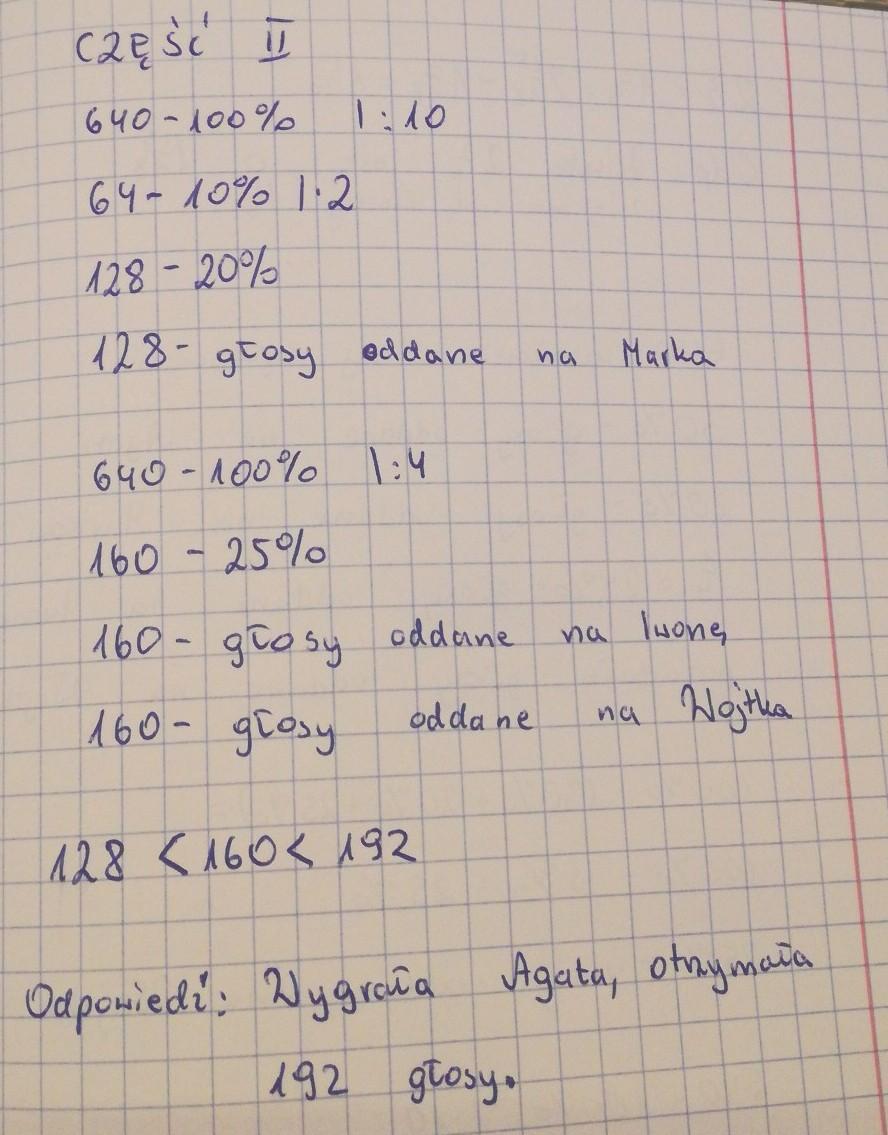 CZĘŚĆ II
640 - 100% | : 10
64 - 10% | · 2
128 - 20%
128 - głosy oddane na Marka
640 - 100% | : 4
160 - 25%
160 - głosy oddane na Iwonę
160 - głosy oddane na Wojtka
128 < 160 < 192
Odpowiedź: Wygrała Agata, otrzymała
192 głosy.